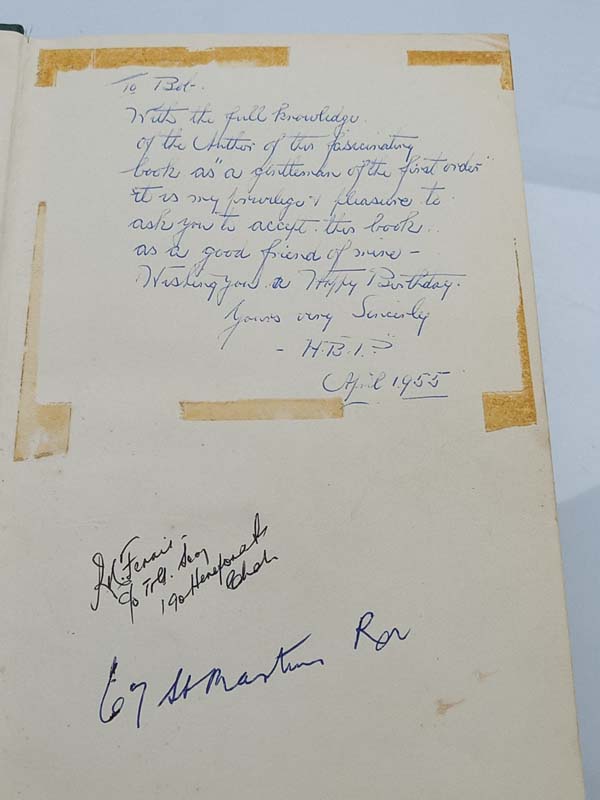 To Bob-
With the full knowledge
of the Author of this fascinating
book as "a gentleman of the first order"
it is my privilege & pleasure to
ask you to accept this book
as a good friend of mine -
Wishing you a Happy Birthday.
Yours very Sincerely
- H.B.I.?
April 1955
Ferrie -
c/o
190 Hereford St
Chch
67 St Martins Rd